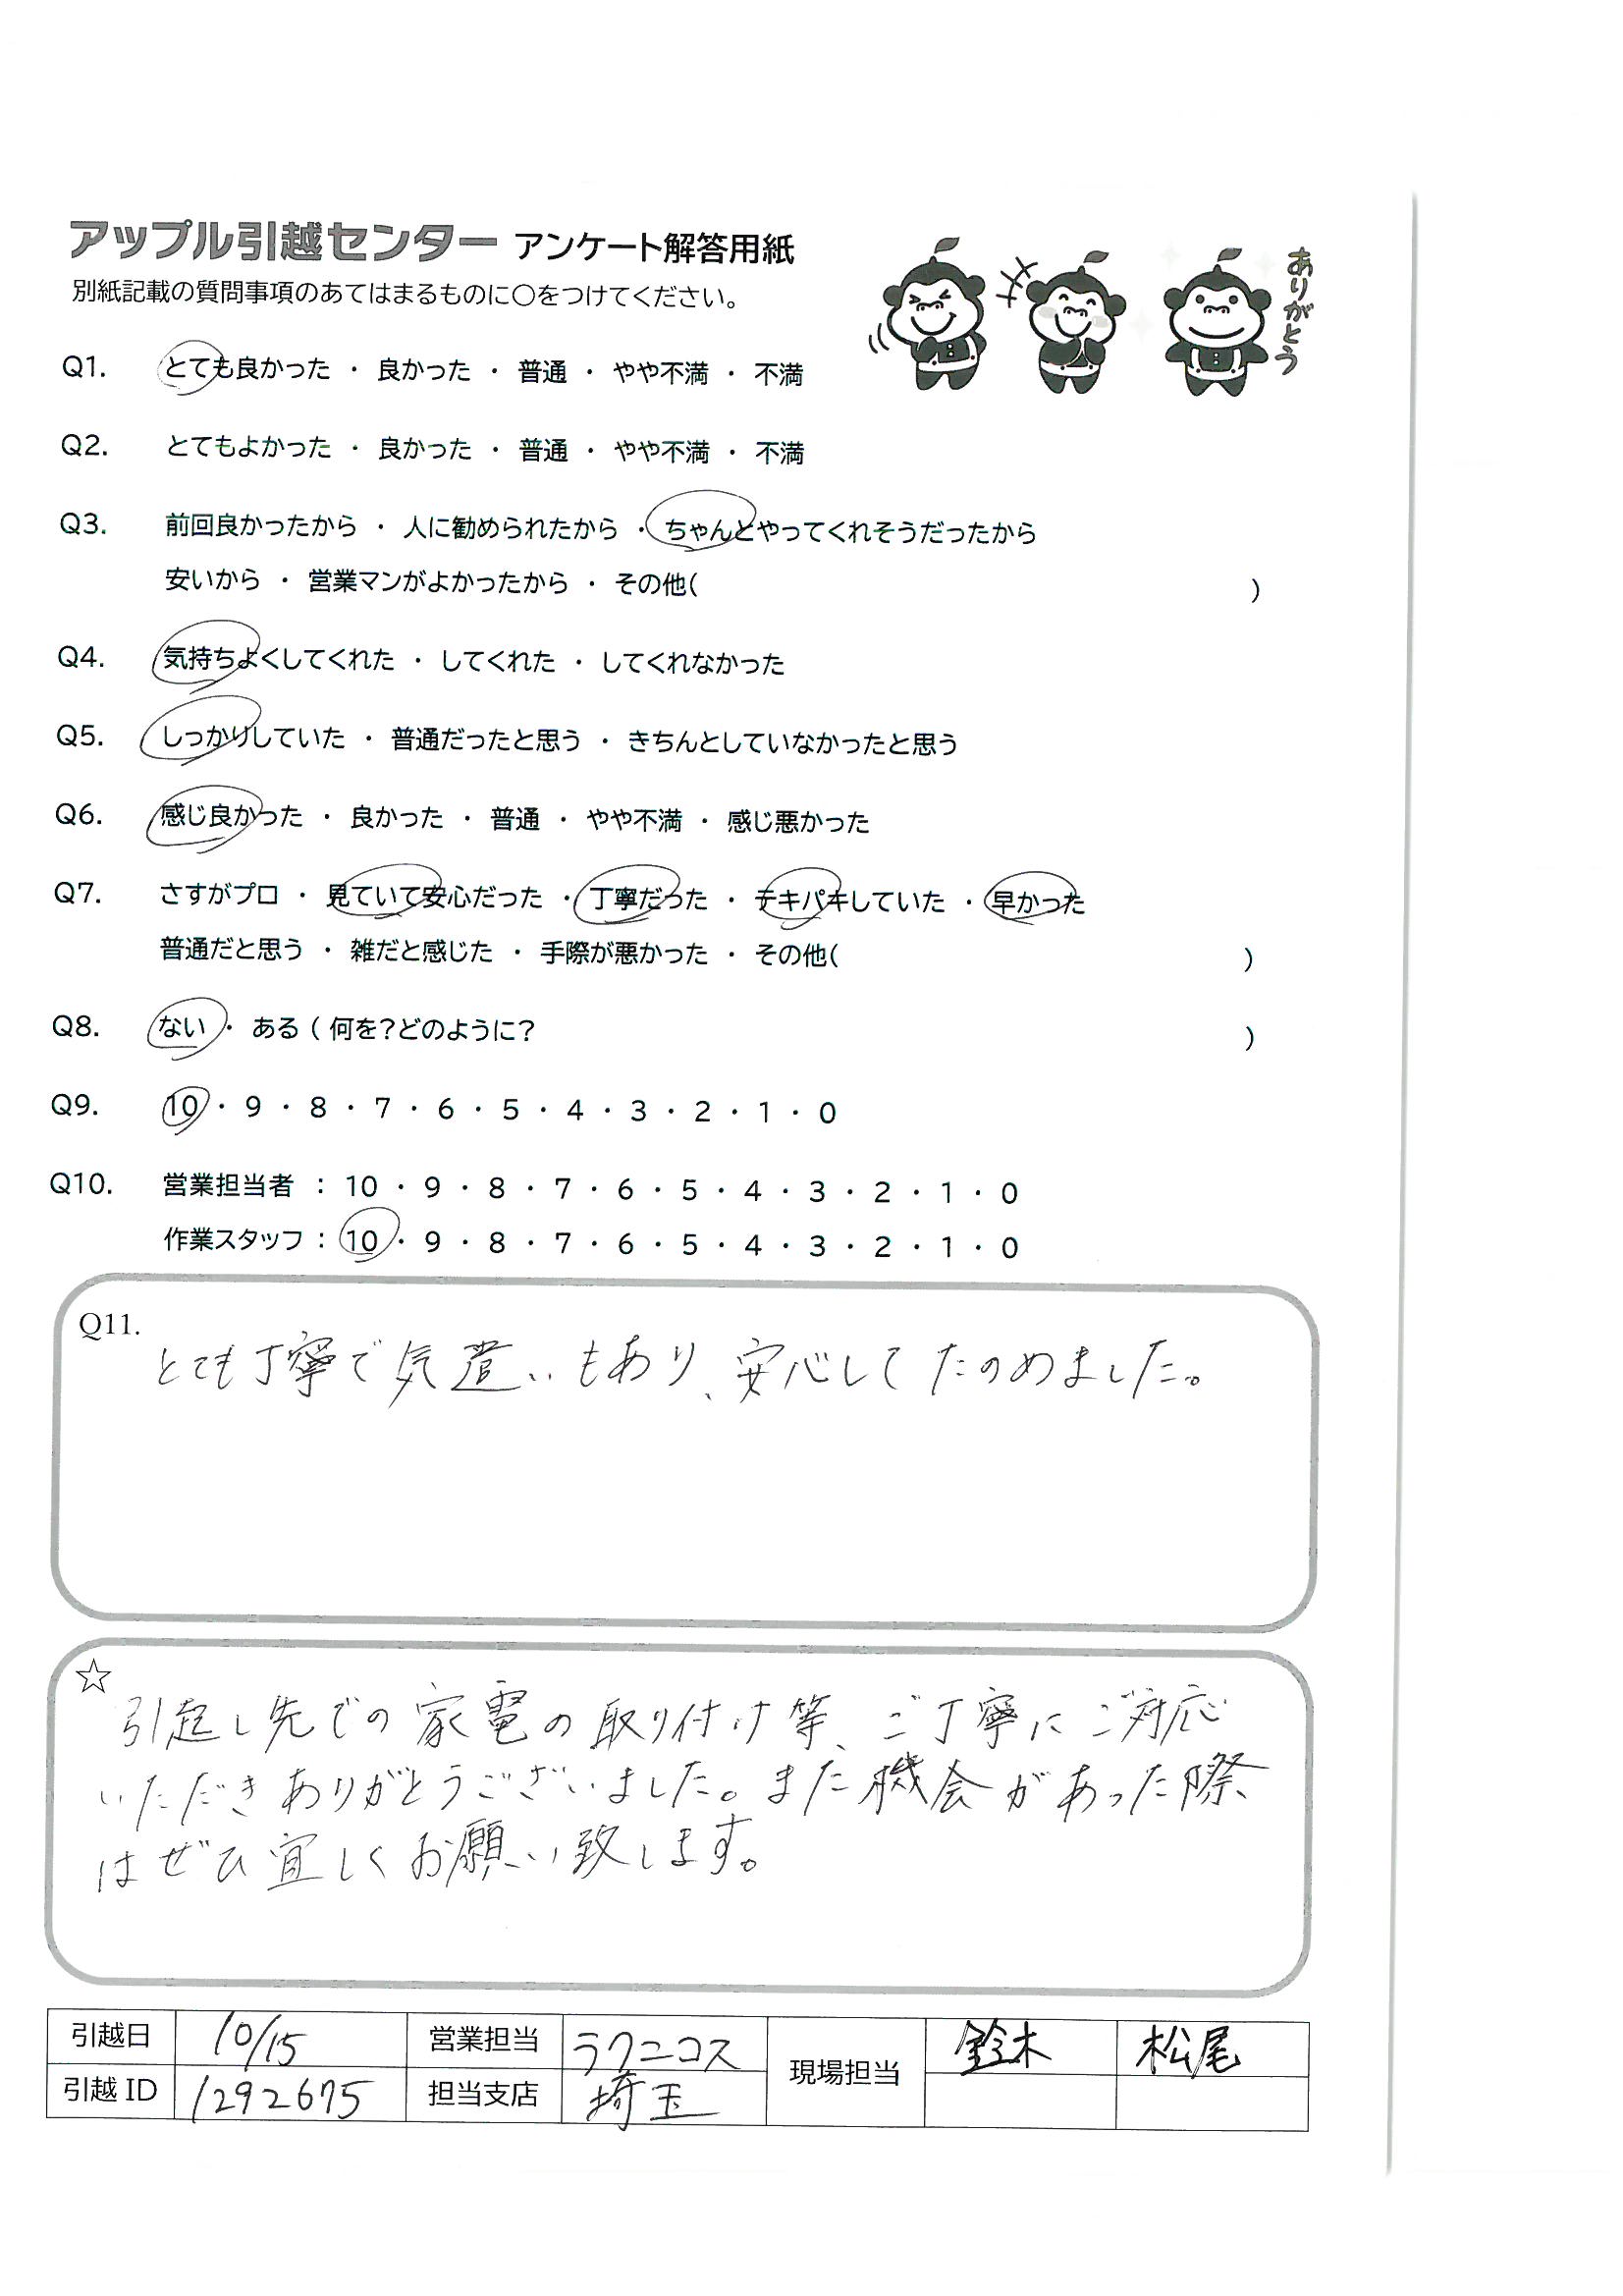 アップル引越センター アンケート解答用紙
別紙記載の質問事項のあてはまるものに○をつけてください。
ありがとう
Q1. とても良かった ・ 良かった ・ 普通 ・ やや不満 ・ 不満
Q2. とてもよかった ・ 良かった ・ 普通 ・ やや不満 ・ 不満
Q3. 前回良かったから ・ 人に勧められたから ・ ちゃんとやってくれそうだったから
安いから ・ 営業マンがよかったから ・ その他( )
Q4. 気持ちよくしてくれた ・ してくれた ・ してくれなかった
Q5. しっかりしていた ・ 普通だったと思う ・ きちんとしていなかったと思う
Q6. 感じ良かった ・ 良かった ・ 普通 ・ やや不満 ・ 感じ悪かった
Q7. さすがプロ ・ 見ていて安心だった ・ 丁寧だった ・ テキパキしていた ・ 早かった
普通だと思う ・ 雑だと感じた ・ 手際が悪かった ・ その他( )
Q8. ない ・ ある ( 何を?どのように? )
Q9. 10 ・ 9 ・ 8 ・ 7 ・ 6 ・ 5 ・ 4 ・ 3 ・ 2 ・ 1 ・ 0
Q10. 営業担当者 : 10 ・ 9 ・ 8 ・ 7 ・ 6 ・ 5 ・ 4 ・ 3 ・ 2 ・ 1 ・ 0
作業スタッフ : 10 ・ 9 ・ 8 ・ 7 ・ 6 ・ 5 ・ 4 ・ 3 ・ 2 ・ 1 ・ 0
Q11.
とても丁寧で気遣いもあり、安心してたのめました。
☆
引越し先での家電の取り付け等、ご丁寧にご対応
いただきありがとうございました。また機会があった際
はぜひ宜しくお願い致します。
引越日 10/15 営業担当 ラクニコス 現場担当 鈴木 松尾
引越 ID 1292675 担当支店 埼玉